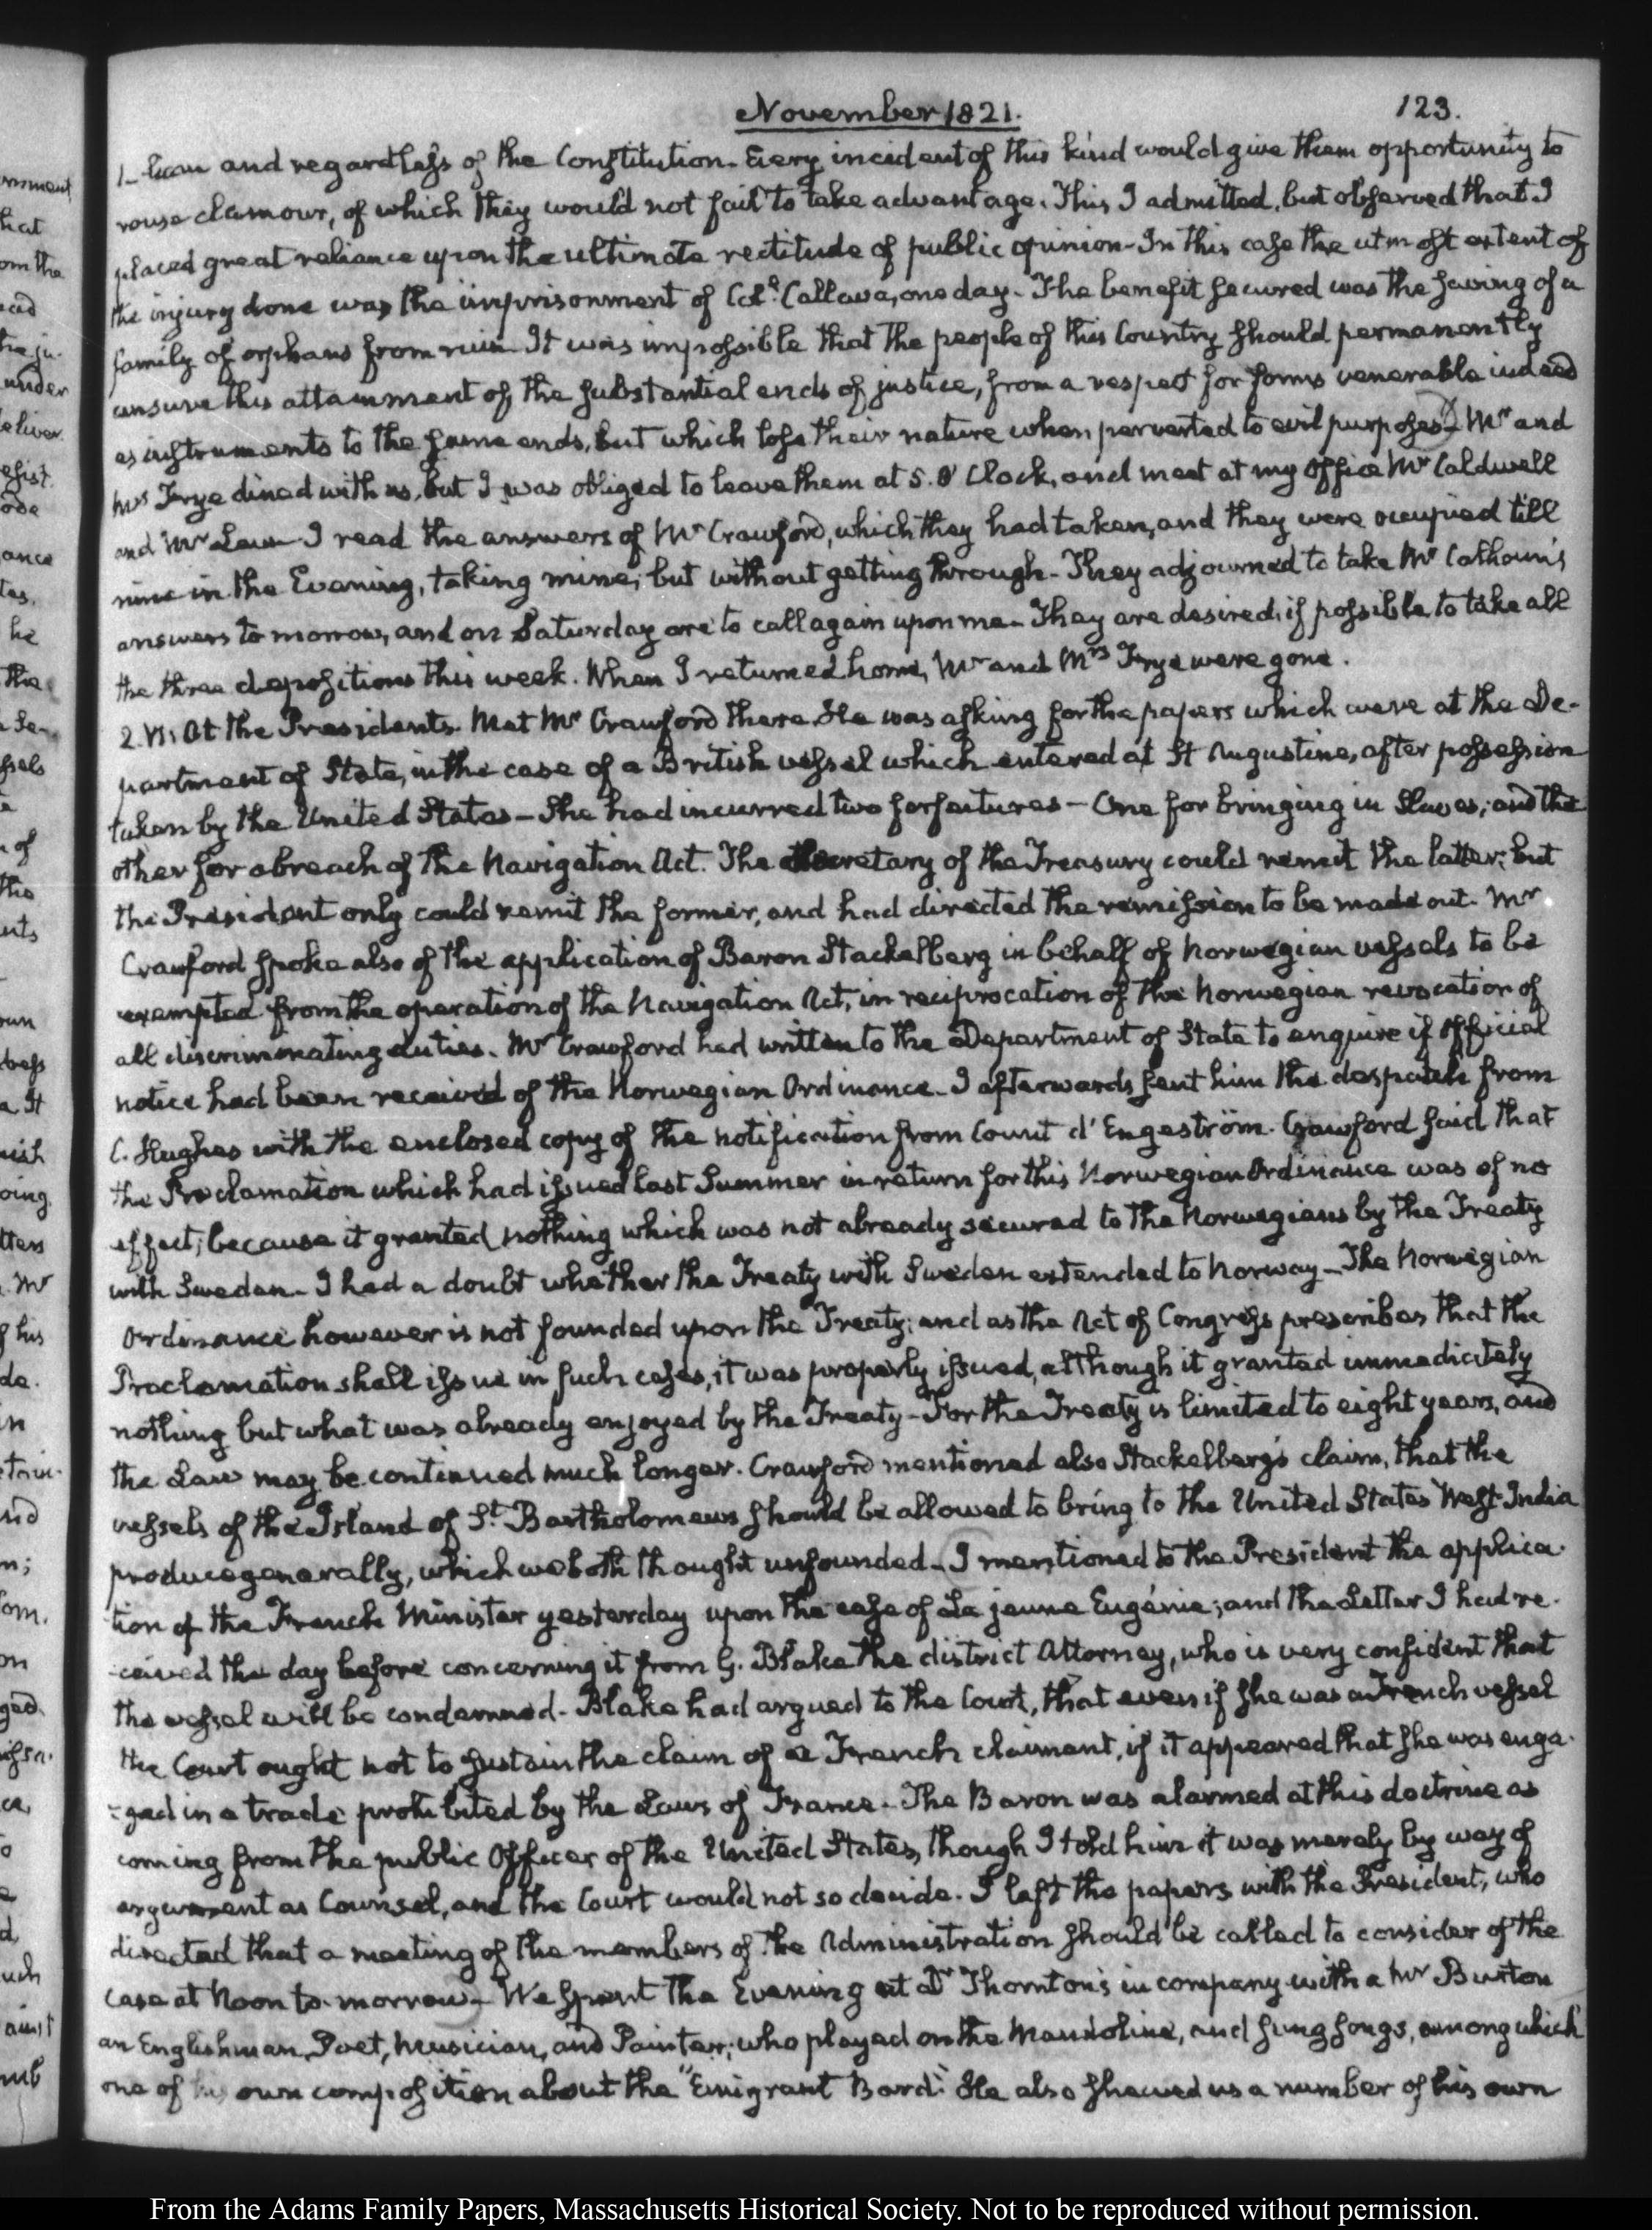 November 1821. 123.
and regardless of the Constitution. Every incident of this kind would give them opportunity to
rouse clamour, of which they would not fail to take advantage. This I admitted, but observed that I
placed great reliance upon the ultimate rectitude of public opinion. In this case the utmost extent of
the injury done was the imprisonment of Coll. Callava, one day. The benefit secured was the saving of a
family of orphans from ruin. It was impossible that the people of this Country should permanently
censure this attainment of the substantial ends of justice, from a respect for forms venerable indeed
as instruments to the same ends, but which lose their nature when perverted to evil purposes. Mr and
Mrs Frye dined with us, but I was obliged to leave them at 5. O'Clock, and meet at my Office Mr Caldwell
and Mr Law. I read the answers of Mr Crawford, which they had taken, and they were occupied till
nine in the Evening, taking mine; but without getting through. They adjourned to take Mr Calhoun's
answers to morrow, and on Saturday are to call again upon me. They are desired, if possible to take all
the three depositions this week. When I returned home, Mr and Mrs Frye were gone.
2. VI: At the Presidents. Met Mr Crawford there. He was asking for the papers which were at the De-
partment of State, in the case of a British vessel which entered at St Augustine, after possession
taken by the United States - She had incurred two forfeitures - One for bringing in Slaves; and the
other for a breach of the Navigation Act. The Secretary of the Treasury could remit the latter; but
the President only could remit the former, and had directed the remission to be made out. Mr
Crawford spoke also of the application of Baron Stackelberg in behalf of Norwegian vessels to be
exempted from the operation of the Navigation Act, in reciprocation of the Norwegian revocation of
all discriminating duties. Mr Crawford had written to the Department of State to enquire if official
notice had been received of the Norwegian Ordinance. I afterwards sent him the despatch from
C. Hughes with the enclosed copy of the notification from Count d'Engeström. Crawford said that
the Proclamation which had issued last Summer in return for this Norwegian Ordinance was of no
effect; because it granted nothing which was not already secured to the Norwegians by the Treaty
with Sweden. I had a doubt whether the Treaty with Sweden extended to Norway - The Norwegian
Ordinance however is not founded upon the Treaty; and as the Act of Congress prescribes that the
Proclamation shall issue in such cases, it was properly issued, although it granted immediately
nothing but what was already enjoyed by the Treaty - For the Treaty is limited to eight years, and
the Law may be continued much longer. Crawford mentioned also Stackelberg's claim, that the
vessels of the Island of St. Bartholomews should be allowed to bring to the United States West-India
produce generally, which we both thought unfounded - I mentioned to the President the applica-
tion of the French Minister yesterday upon the case of La jeune Eugénie; and the Letter I had re-
-ceived the day before concerning it from G. Blake the district Attorney, who is very confident that
the vessel will be condemned. Blake had argued to the Court, that even if she was a French vessel
the Court ought not to sustain the claim of a French claimant, if it appeared that she was enga-
-ged in a trade prohibited by the Laws of France. The Baron was alarmed at this doctrine as
coming from the public Officer of the United States, though I told him it was merely by way of
argument as Counsel, and the Court would not so decide. I left the papers with the President; who
directed that a meeting of the members of the Administration should be called to consider of the
case at Noon to-morrow - We spent the Evening at Dr Thornton's in company with a Mr Burton
an Englishman, Poet, Musician, and Painter; who played on the Mandoline, and sung songs, among which
one of his own composition about the "Emigrant Bard." He also shewed us a number of his own
From the Adams Family Papers, Massachusetts Historical Society. Not to be reproduced without permission.